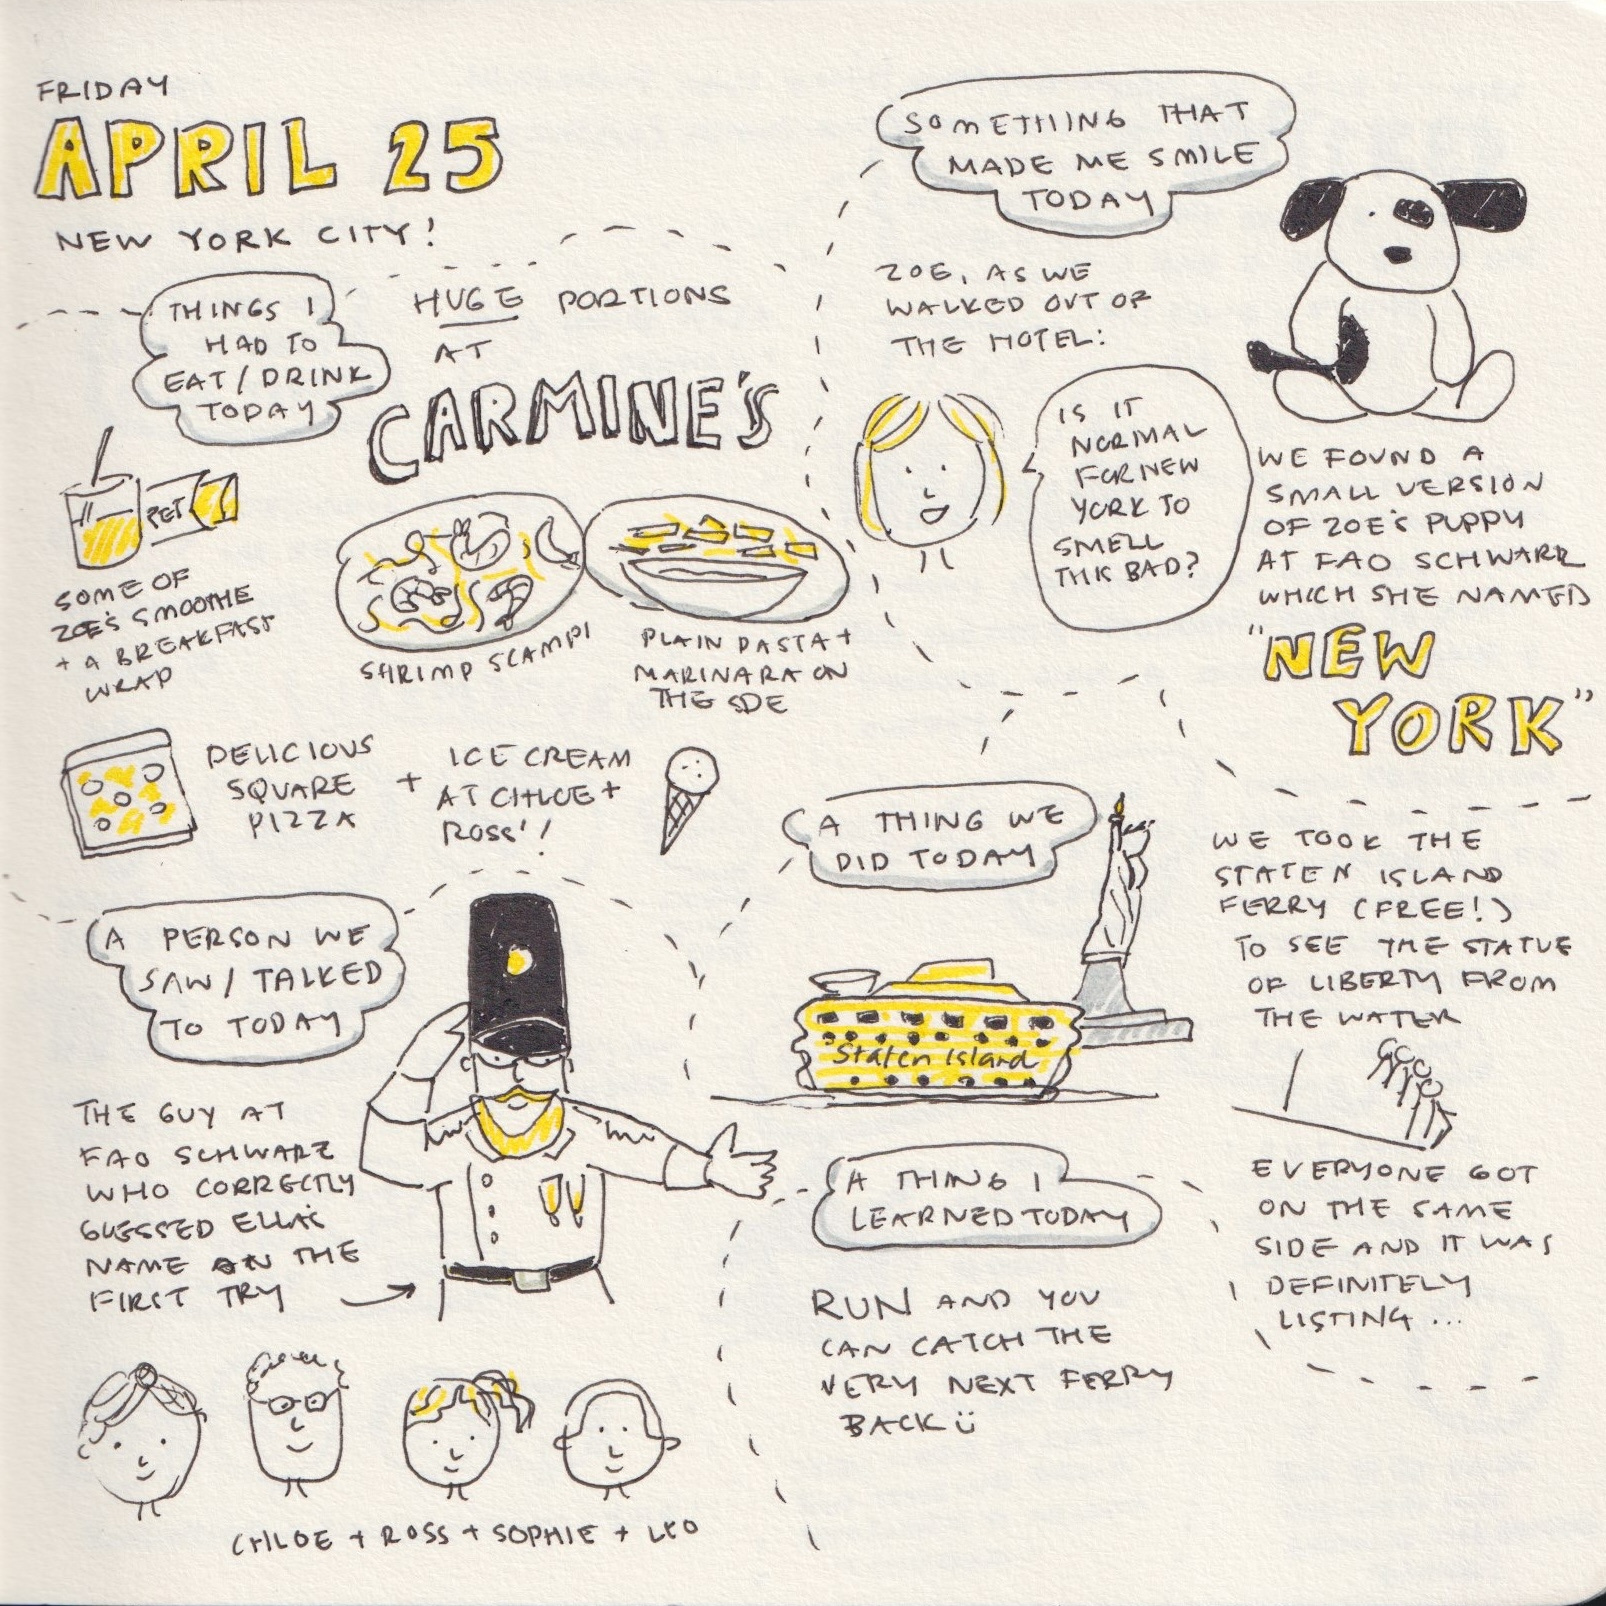 FRIDAY
APRIL 25
NEW YORK CITY!
THINGS I
HAD TO
EAT / DRINK
TODAY
HUGE PORTIONS
AT
CARMINE'S
PET
SOME OF
ZOE'S SMOOTHIE
+ A BREAKFAST
WRAP
SHRIMP SCAMPI
PLAIN PASTA +
MARINARA ON
THE SIDE
DELICIOUS
SQUARE
PIZZA
+
ICE CREAM
AT CHLOE +
ROSS'!
A PERSON WE
SAW / TALKED
TO TODAY
THE GUY AT
FAO SCHWARZ
WHO CORRECTLY
GUESSED ELLA'S
NAME ON THE
FIRST TRY
CHLOE + ROSS + SOPHIE + LEO
SOMETHING THAT
MADE ME SMILE
TODAY
ZOE, AS WE
WALKED OUT OF
THE HOTEL:
IS IT
NORMAL
FOR NEW
YORK TO
SMELL
THIS BAD?
WE FOUND A
SMALL VERSION
OF ZOE'S PUPPY
AT FAO SCHWARZ
WHICH SHE NAMED
"NEW
YORK"
A THING WE
DID TODAY
Staten Island
WE TOOK THE
STATEN ISLAND
FERRY (FREE!)
TO SEE THE STATUE
OF LIBERTY FROM
THE WATER
EVERYONE GOT
ON THE SAME
SIDE AND IT WAS
DEFINITELY
LISTING...
A THING I
LEARNED TODAY
RUN AND YOU
CAN CATCH THE
VERY NEXT FERRY
BACK ü